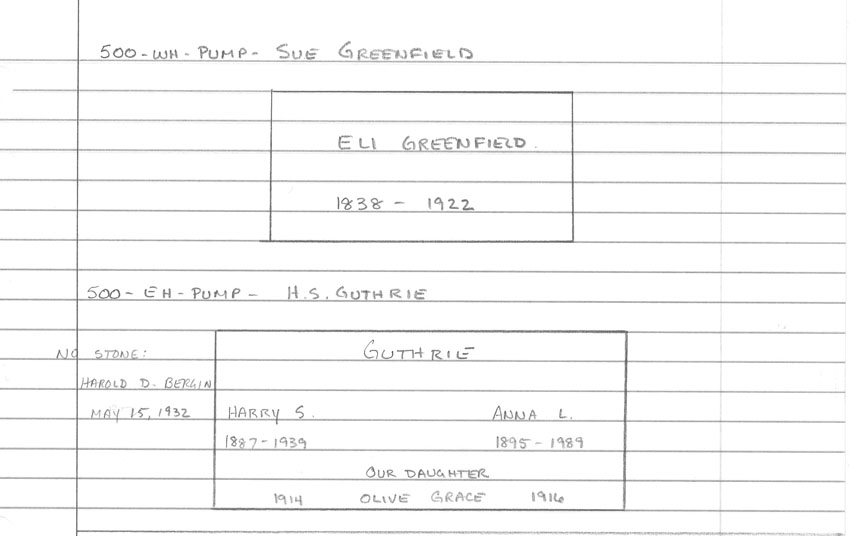 500-WH-PUMP- SUE GREENFIELD
ELI GREENFIELD.
1838 - 1922
500-EH-PUMP- H.S. GUTHRIE
NO STONE:
HAROLD D. BERGIN
MAY 15, 1932
GUTHRIE
HARRY S. ANNA L.
1887-1939 1895-1989
OUR DAUGHTER
1914 OLIVE GRACE 1916